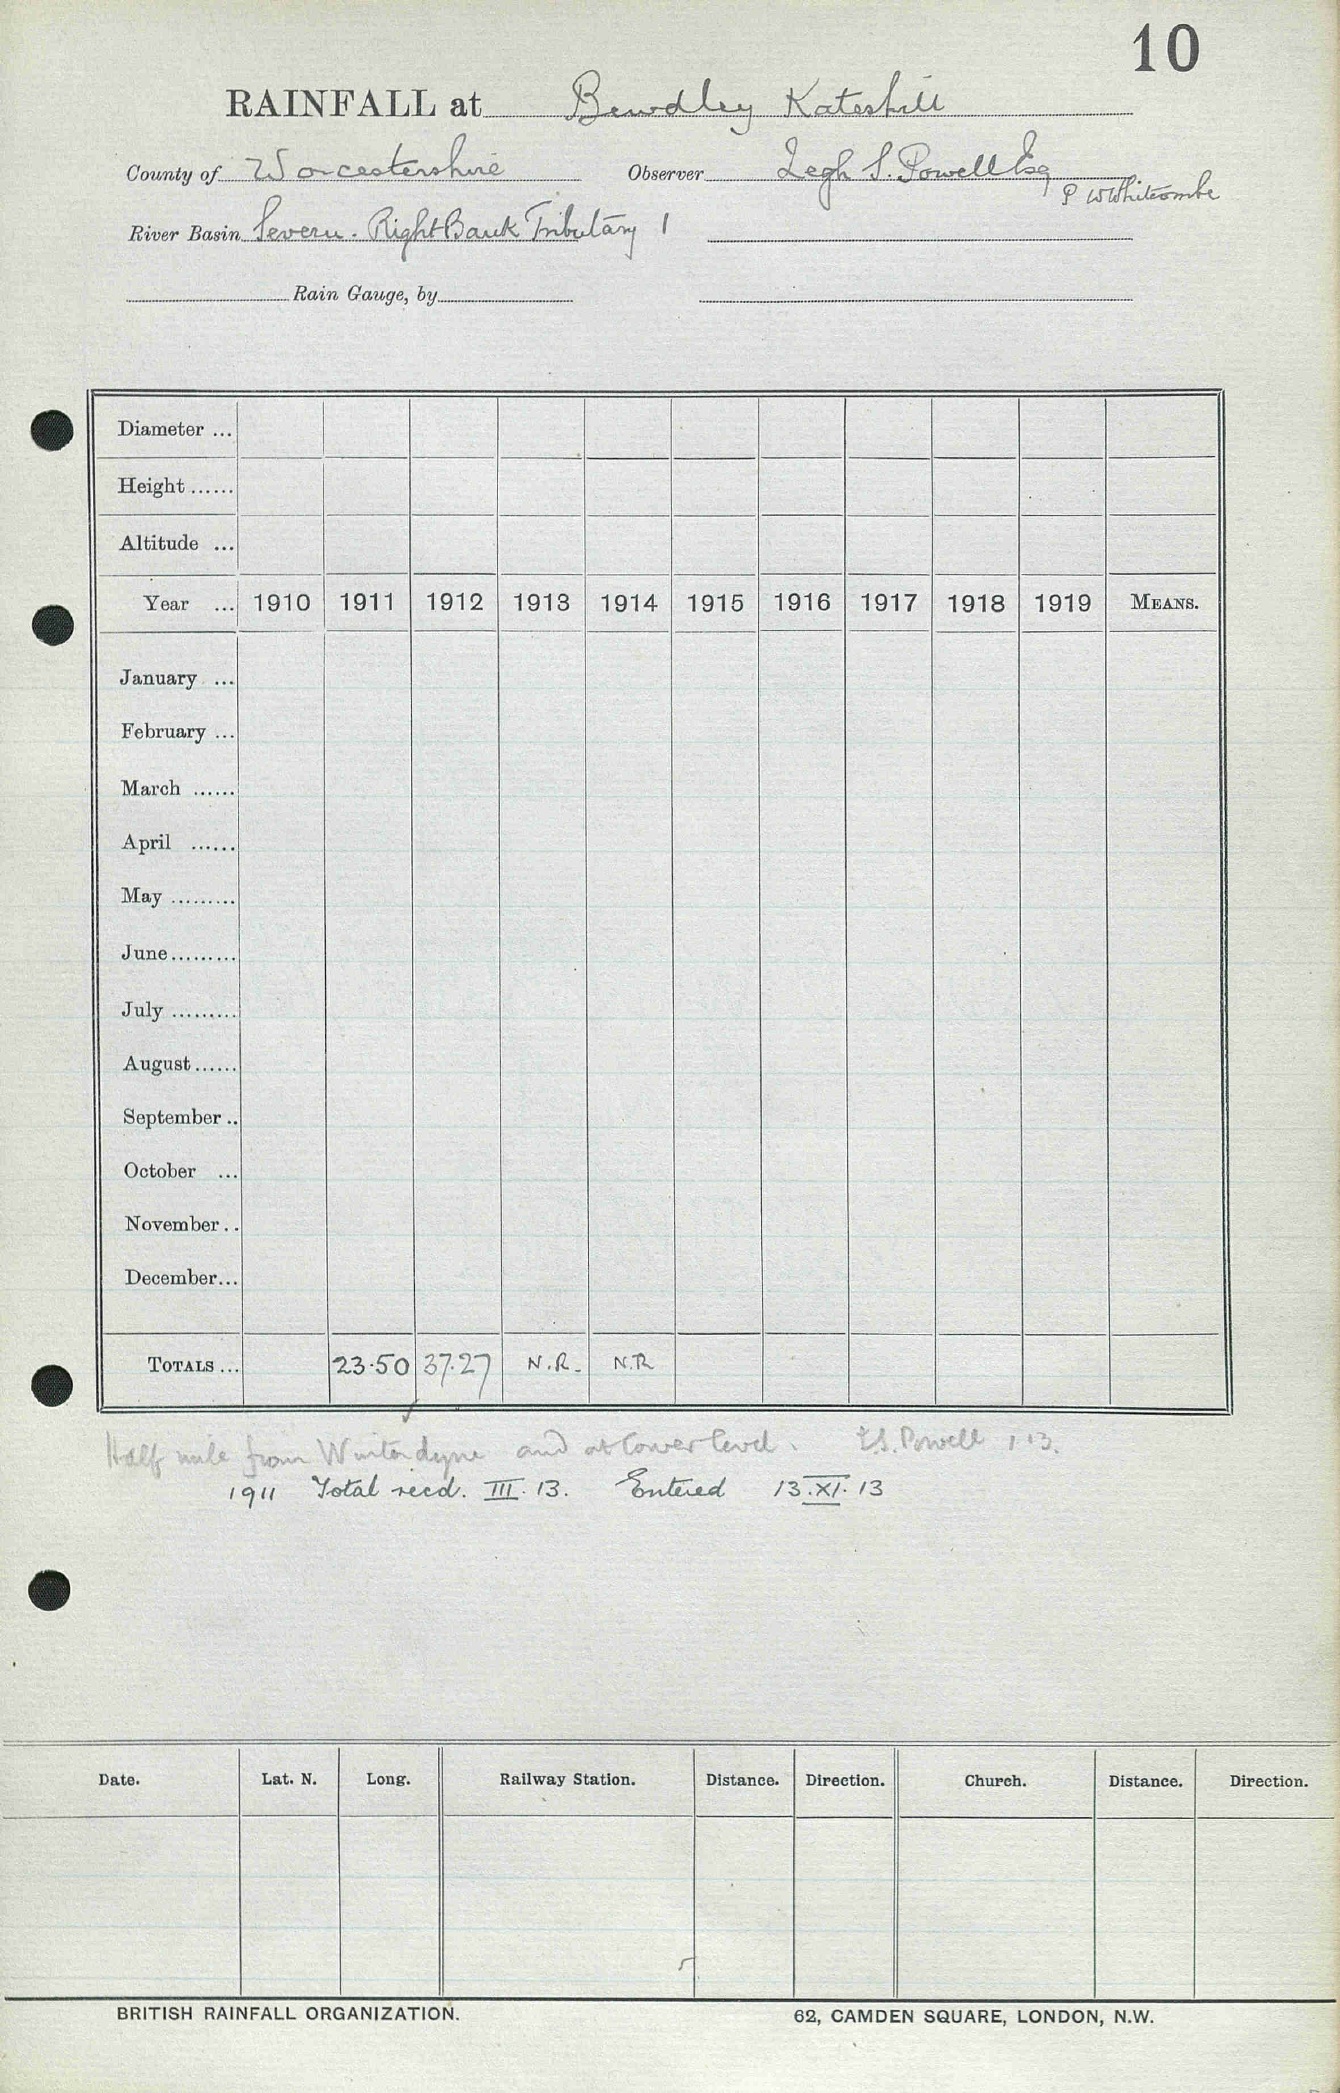 10
RAINFALL at Bewdley Kateshill
County of Worcestershire Observer Legh S. Powell Esq
P W Whitcombe
River Basin Severn - Right Bank Tributary 1
Rain Gauge, by
Diameter ...
Height ......
Altitude ...
Year ... 1910 1911 1912 1913 1914 1915 1916 1917 1918 1919 MEANS.
January ...
February ...
March ......
April ......
May .........
June.........
July .........
August......
September ..
October ...
November ..
December...
TOTALS ... 23.50 37.27 N.R. N.R
Half mile from Winterdyne and at lower level. L.S. Powell 1 13.
1911 Total recd. III. 13. Entered 13.XI.13
Date. Lat. N. Long. Railway Station. Distance. Direction. Church. Distance. Direction.
BRITISH RAINFALL ORGANIZATION. 62, CAMDEN SQUARE, LONDON, N.W.